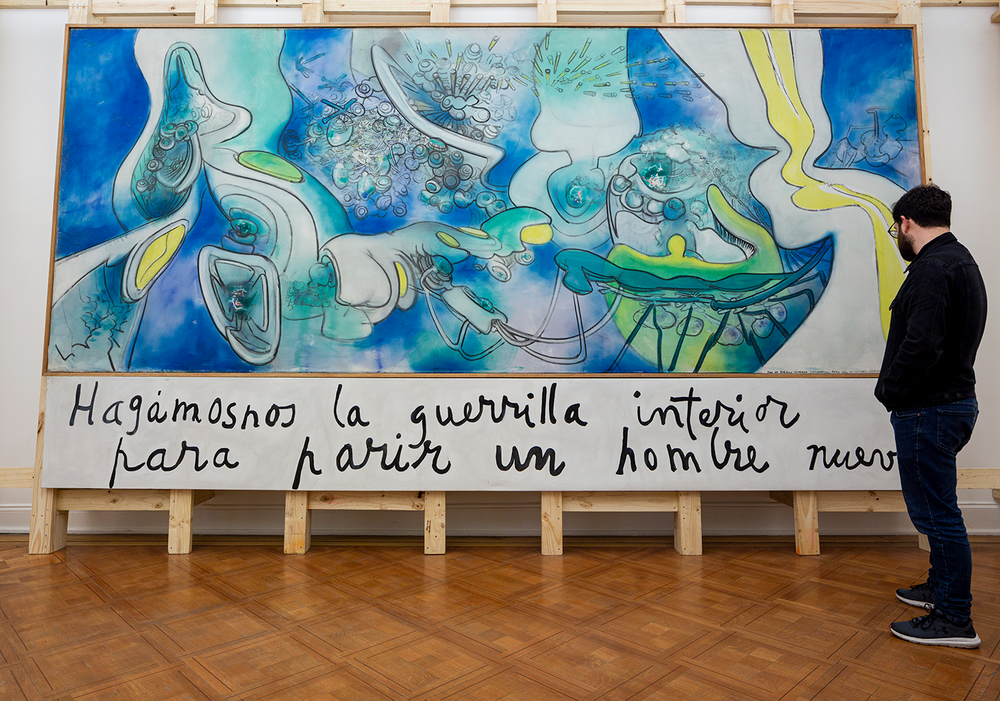 Hagámosnos la guerrilla interior
para parir un hombre nuev